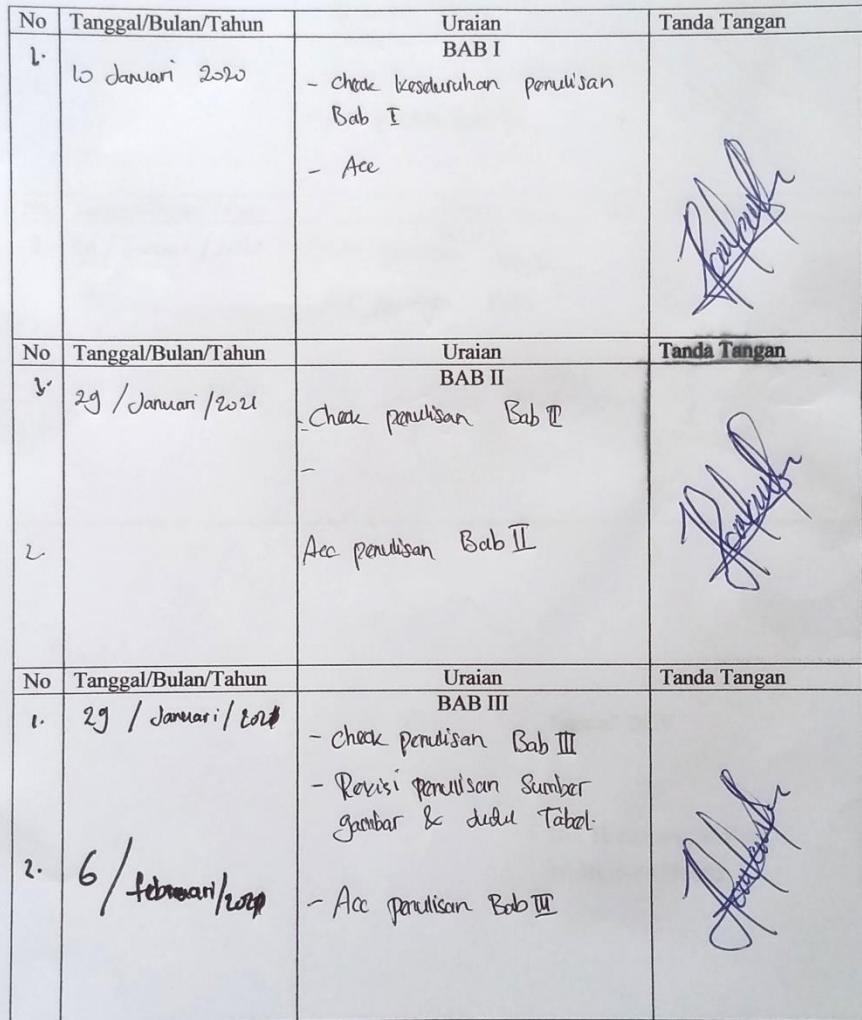 No Tanggal/Bulan/Tahun Uraian Tanda Tangan
BAB I
1. 10 Januari 2020 - Check keseluruhan penulisan
Bab I
- Acc
No Tanggal/Bulan/Tahun Uraian Tanda Tangan
BAB II
1. 29 / Januari / 2021 - Check penulisan Bab II
-
2 Acc penulisan Bab II
No Tanggal/Bulan/Tahun Uraian Tanda Tangan
BAB III
1. 29 / Januari / 2021 - Check penulisan Bab III
- Revisi penulisan Sumber
gambar & Judul Tabel.
2. 6 / februari / 2021 - Acc penulisan Bab III